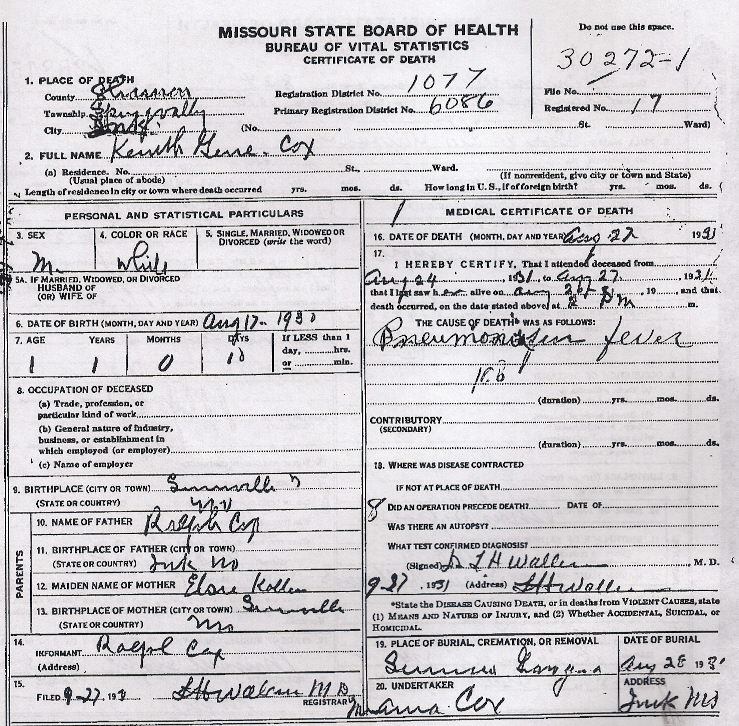 MISSOURI STATE BOARD OF HEALTH
BUREAU OF VITAL STATISTICS
CERTIFICATE OF DEATH
Do not use this space.
30272-1
1. PLACE OF DEATH
County Shannon
Registration District No. 1077
File No.
Township
Primary Registration District No. 6086
Registered No. 17
City
(No. St. Ward)
2. FULL NAME Kenith Gene Cox
(a) Residence. No. St., Ward.
(Usual place of abode) (If nonresident, give city or town and State)
Length of residence in city or town where death occurred yrs. mos. ds. How long in U.S., if of foreign birth? yrs. mos. ds.
PERSONAL AND STATISTICAL PARTICULARS
3. SEX
M.
4. COLOR OR RACE
White
5. SINGLE, MARRIED, WIDOWED OR DIVORCED (write the word)
5A. IF MARRIED, WIDOWED, OR DIVORCED
HUSBAND OF
(OR) WIFE OF
6. DATE OF BIRTH (MONTH, DAY AND YEAR) Aug 17- 1930
7. AGE YEARS MONTHS DAYS If LESS than 1 day, hrs. or min.
1 1 0 10
8. OCCUPATION OF DECEASED
(a) Trade, profession, or particular kind of work
(b) General nature of industry, business, or establishment in which employed (or employer)
(c) Name of employer
9. BIRTHPLACE (CITY OR TOWN)
(STATE OR COUNTRY) Mo
PARENTS
10. NAME OF FATHER Ralph Cox
11. BIRTHPLACE OF FATHER (CITY OR TOWN)
(STATE OR COUNTRY) Mo
12. MAIDEN NAME OF MOTHER
13. BIRTHPLACE OF MOTHER (CITY OR TOWN)
(STATE OR COUNTRY) Mo
14.
INFORMANT Ralph Cox
(Address)
15.
FILED 9-27 193 M D
REGISTRAR
MEDICAL CERTIFICATE OF DEATH
16. DATE OF DEATH (MONTH, DAY AND YEAR) Aug 27 1931
17.
I HEREBY CERTIFY, That I attended deceased from
Aug 24 1931, to Aug 27 1931
that I last saw h alive on Aug 26 19 , and that
death occurred, on the date stated above, at 2 PM m.
THE CAUSE OF DEATH* WAS AS FOLLOWS:
fever
(duration) yrs. mos. ds.
CONTRIBUTORY
(SECONDARY)
(duration) yrs. mos. ds.
18. WHERE WAS DISEASE CONTRACTED
IF NOT AT PLACE OF DEATH
DID AN OPERATION PRECEDE DEATH? DATE OF
WAS THERE AN AUTOPSY?
WHAT TEST CONFIRMED DIAGNOSIS?
(Signed) M. D.
9-27, 1931 (Address)
*State the DISEASE CAUSING DEATH, or in deaths from VIOLENT CAUSES, state
(1) MEANS AND NATURE OF INJURY, and (2) Whether ACCIDENTAL, SUICIDAL, or
HOMICIDAL.
19. PLACE OF BURIAL, CREMATION, OR REMOVAL
DATE OF BURIAL
Aug 28 193
20. UNDERTAKER
Cox
ADDRESS